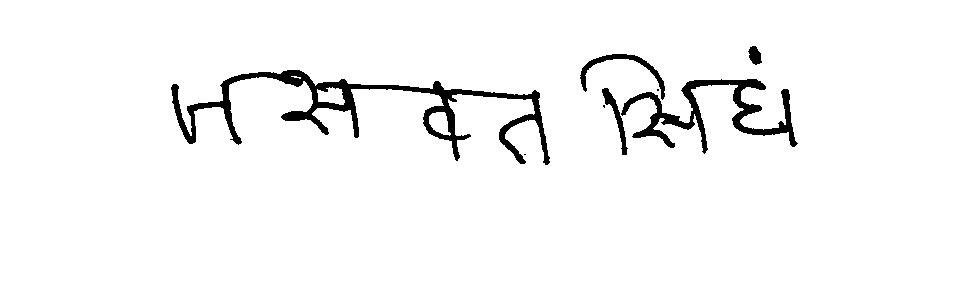 जसवत सिघं